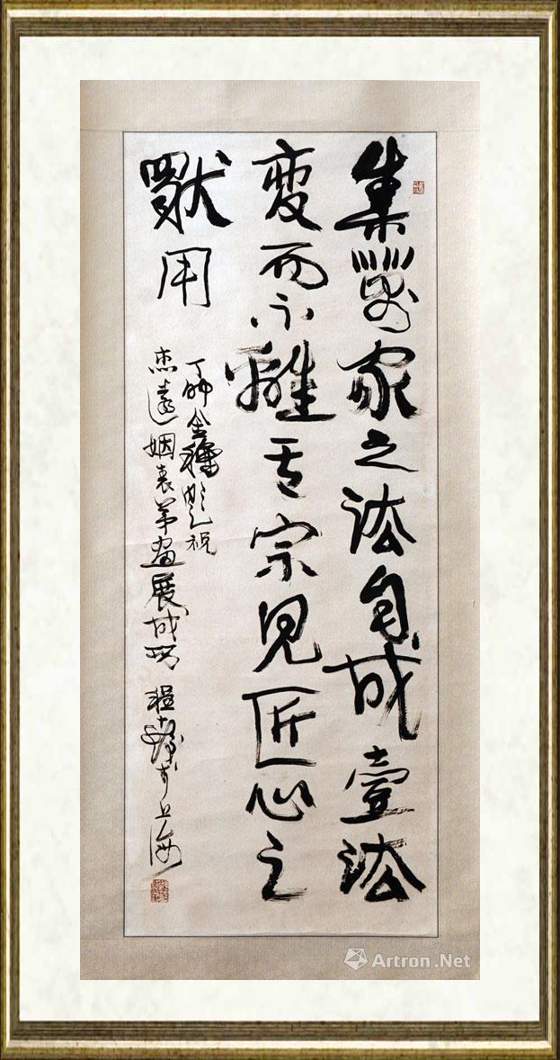 集萬家之法自成壹法
變而不離其宗見匠心之
用
丁卯金穐 祝
杰遠姻表弟畫展成功 程十髮于上海
Artron.Net